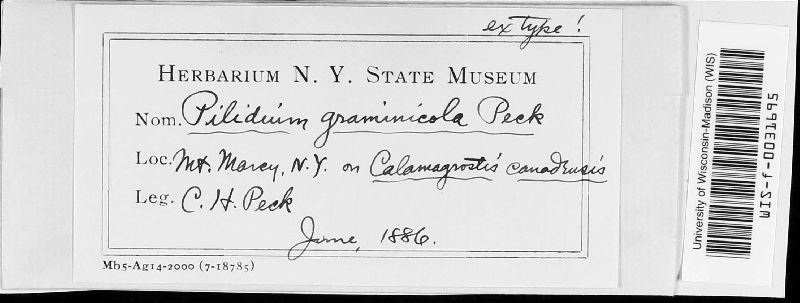 ex type!
Herbarium N. Y. State Museum
Nom. Pilidium graminicola Peck
Loc. Mt. Marcy, N.Y. on Calamagrostis canadensis
Leg. C. H. Peck
June, 1886.
Mb5-Ag14-2000 (7-18785)
University of Wisconsin-Madison (WIS)
WIS-f-0031695